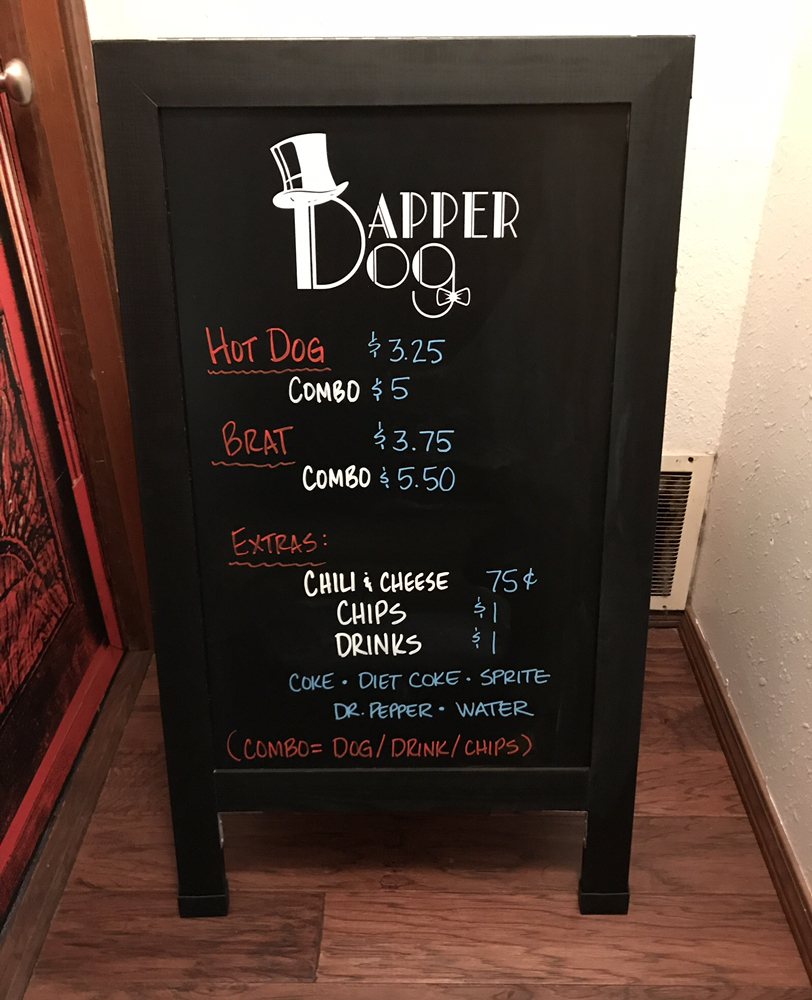 DAPPER
DOg
HOT DOG $3.25
COMBO $5
BRAT $3.75
COMBO $5.50
EXTRAS:
CHILI & CHEESE 75¢
CHIPS $1
DRINKS $1
COKE • DIET COKE • SPRITE
DR. PEPPER • WATER
(COMBO= DOG/DRINK/CHIPS)